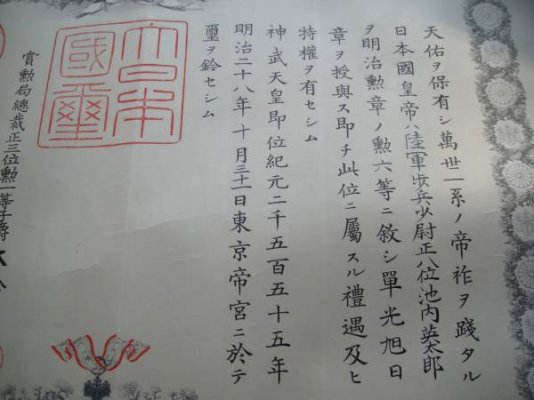 天佑ヲ保有シ萬世一系ノ帝祚ヲ踐タル
日本國皇帝ハ陸軍歩兵少尉正八位池内英太郎
ヲ明治勲章ノ勲六等ニ敘シ單光旭日
章ヲ授與ス即チ此位ニ屬スル禮遇及ヒ
特權ヲ有セシム
神武天皇即位紀元二千五百五十五年
明治二十八年十月三十一日東京帝宮ニ於テ
璽ヲ鈐セシム
大日本
國璽
賞勲局總裁正三位勲一等子爵